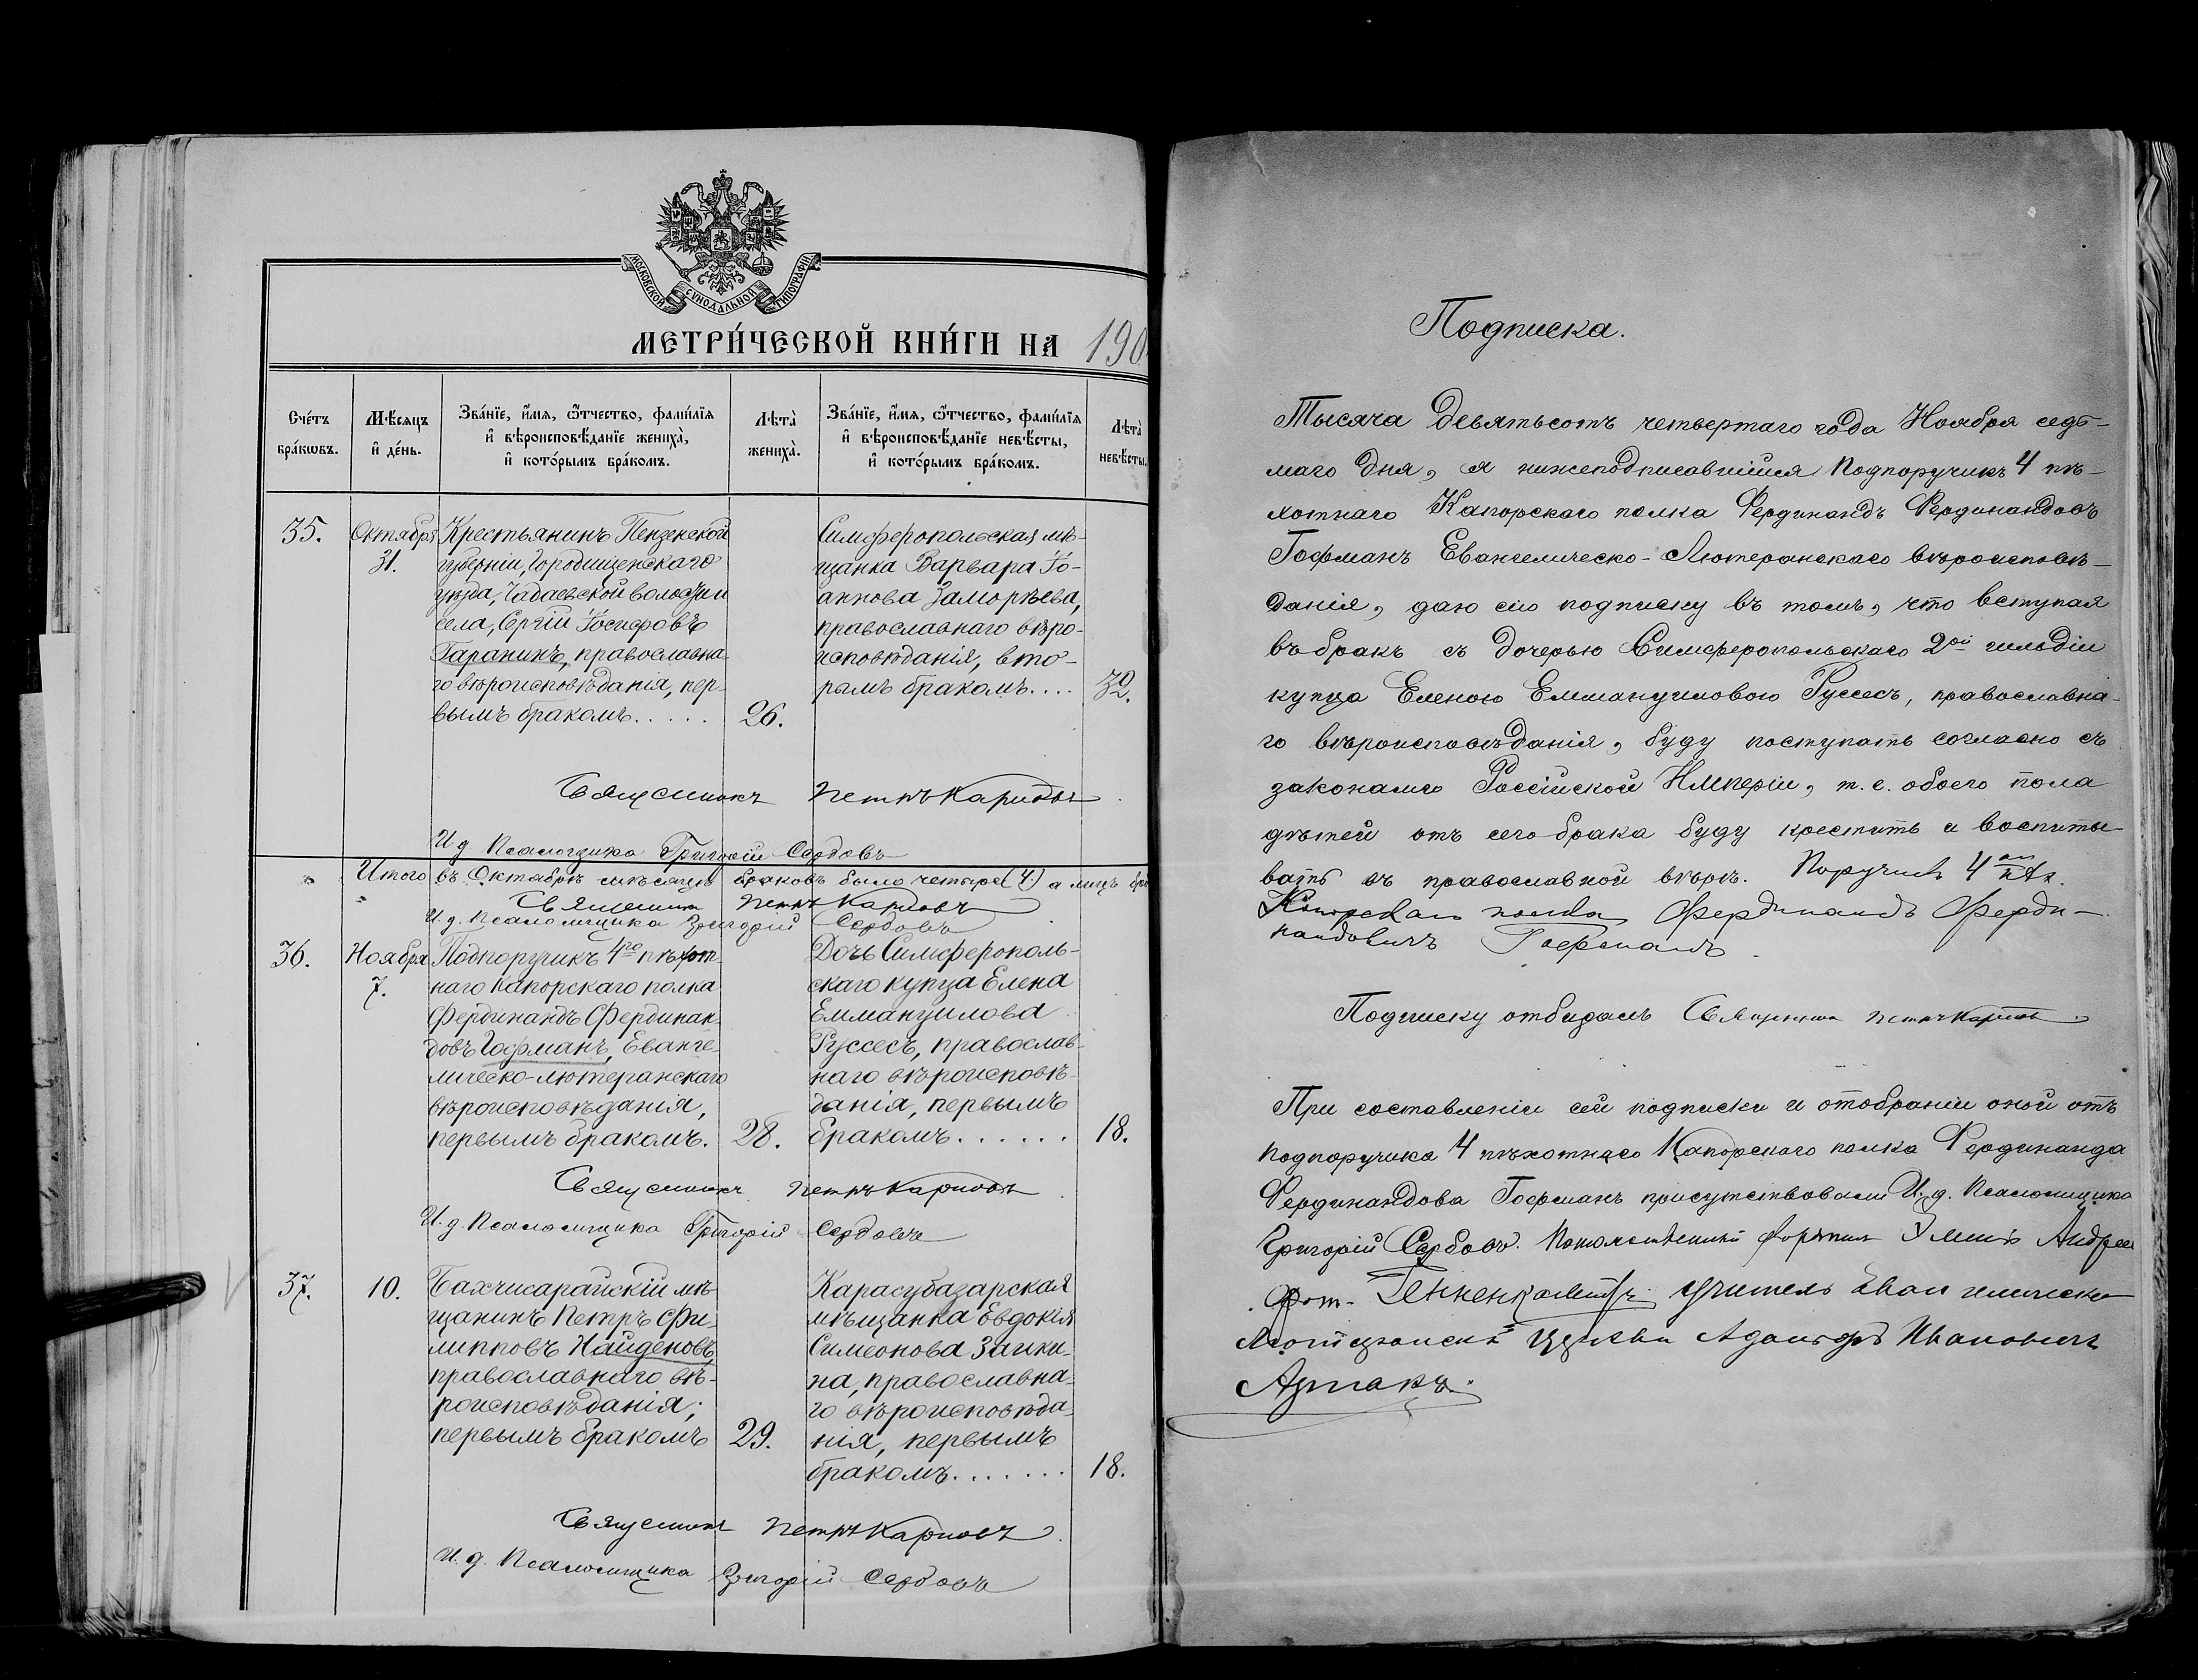 МОСКОВСКОЙ СУНОДАЛЬНОЙ ТИПОГРАФІИ
МЕТРИ́ЧЕСКОЙ КНИ́ГИ НА 190
Сче́тъ бра́кѡвъ.
Мѣ́сяцъ и҆ де́нь.
Зва́нїе, и҆́мѧ, ѻ҆́тчество, фами́лїѧ и҆ вѣроисповѣ́данїе жениха̀, и҆ кото́рымъ бра́комъ.
Лѣта̀ жениха̀.
Зва́нїе, и҆́мѧ, ѻ҆́тчество, фами́лїѧ и҆ вѣроисповѣ́данїе невѣ́сты, и҆ кото́рымъ бра́комъ.
Лѣта̀ невѣ́сты.
35.
Октября
31.
Крестьянинъ Пензенской
губерніи, Городищенскаго
уѣзда, Чадаевской волости и
села, Сергій Іосифовъ
Гаранинъ, православна-
го вѣроисповѣданія, пер-
вымъ бракомъ.....
26.
Симферопольская мѣ-
щанка Варвара Іо-
аннова Заморѣева,
православнаго вѣро-
исповѣданія, вто-
рымъ бракомъ....
32.
Священникъ Петръ Карповъ
И. д. Псаломщика Григорій Сердовъ
Итого въ Октябрѣ мѣсяцѣ браковъ было четыре (4) а лицъ
Священникъ Петръ Карповъ
И. д. Псаломщика Григорій Сердовъ
36.
Ноября
7.
Подпоручикъ 4го пѣхот-
наго Капорскаго полка
Фердинандъ Фердинан-
довъ Гофманъ, Еванге-
лическо-лютеранскаго
вѣроисповѣданія,
первымъ бракомъ.
28.
Дочь Симферополь-
скаго купца Елена
Еммануилова
Руссесъ, православ-
наго вѣроисповѣ-
данія, первымъ
бракомъ......
18.
Священникъ Петръ Карповъ
И. д. Псаломщика Григорій Сердовъ
37.
10.
Бахчисарайскій мѣ-
щанинъ Петръ Фи-
липповъ Найденовъ,
православнаго вѣ-
роисповѣданія;
первымъ бракомъ
29.
Карасубазарская
мѣщанка Евдокія
Симеонова Заики-
на, православна-
го вѣроисповѣда-
нія, первымъ
бракомъ.......
18.
Священникъ Петръ Карповъ
И. д. Псаломщика Григорій Сердовъ
Подписка.
Тысяча девятьсотъ четвертаго года Ноября седь-
маго дня, я нижеподписавшійся Подпоручикъ 4 пѣ-
хотнаго Капорскаго полка Фердинандъ Фердинандовъ
Гофманъ Евангелическо-Лютеранскаго вѣроисповѣ-
данія, даю сію подписку въ томъ, что вступая
въ бракъ съ дочерью Симферопольскаго 2ой гильдіи
купца Еленою Еммануиловою Руссесъ, православна-
го вѣроисповѣданія, буду поступать согласно съ
законами Россійской Имперіи, т. е. обоего пола
дѣтей отъ сего брака буду крестить и воспиты-
вать въ православной вѣрѣ. Поручикъ 4
Капорскаго полка Фердинандъ Ферди-
нандовичъ Гофманъ.
Подписку отбиралъ Священникъ Петръ Карповъ
При составленіи сей подписки и отобраніи оной отъ
подпоручика 4 пѣхотнаго Капорскаго полка Фердинанда
Фердинандова Гофманъ присутствовали И. д. Псаломщика
Григорій Сердовъ. Потомственный дворянинъ Андрей
учитель Евангелическо
Лютеранской Церкви Адольфъ Ивановичъ